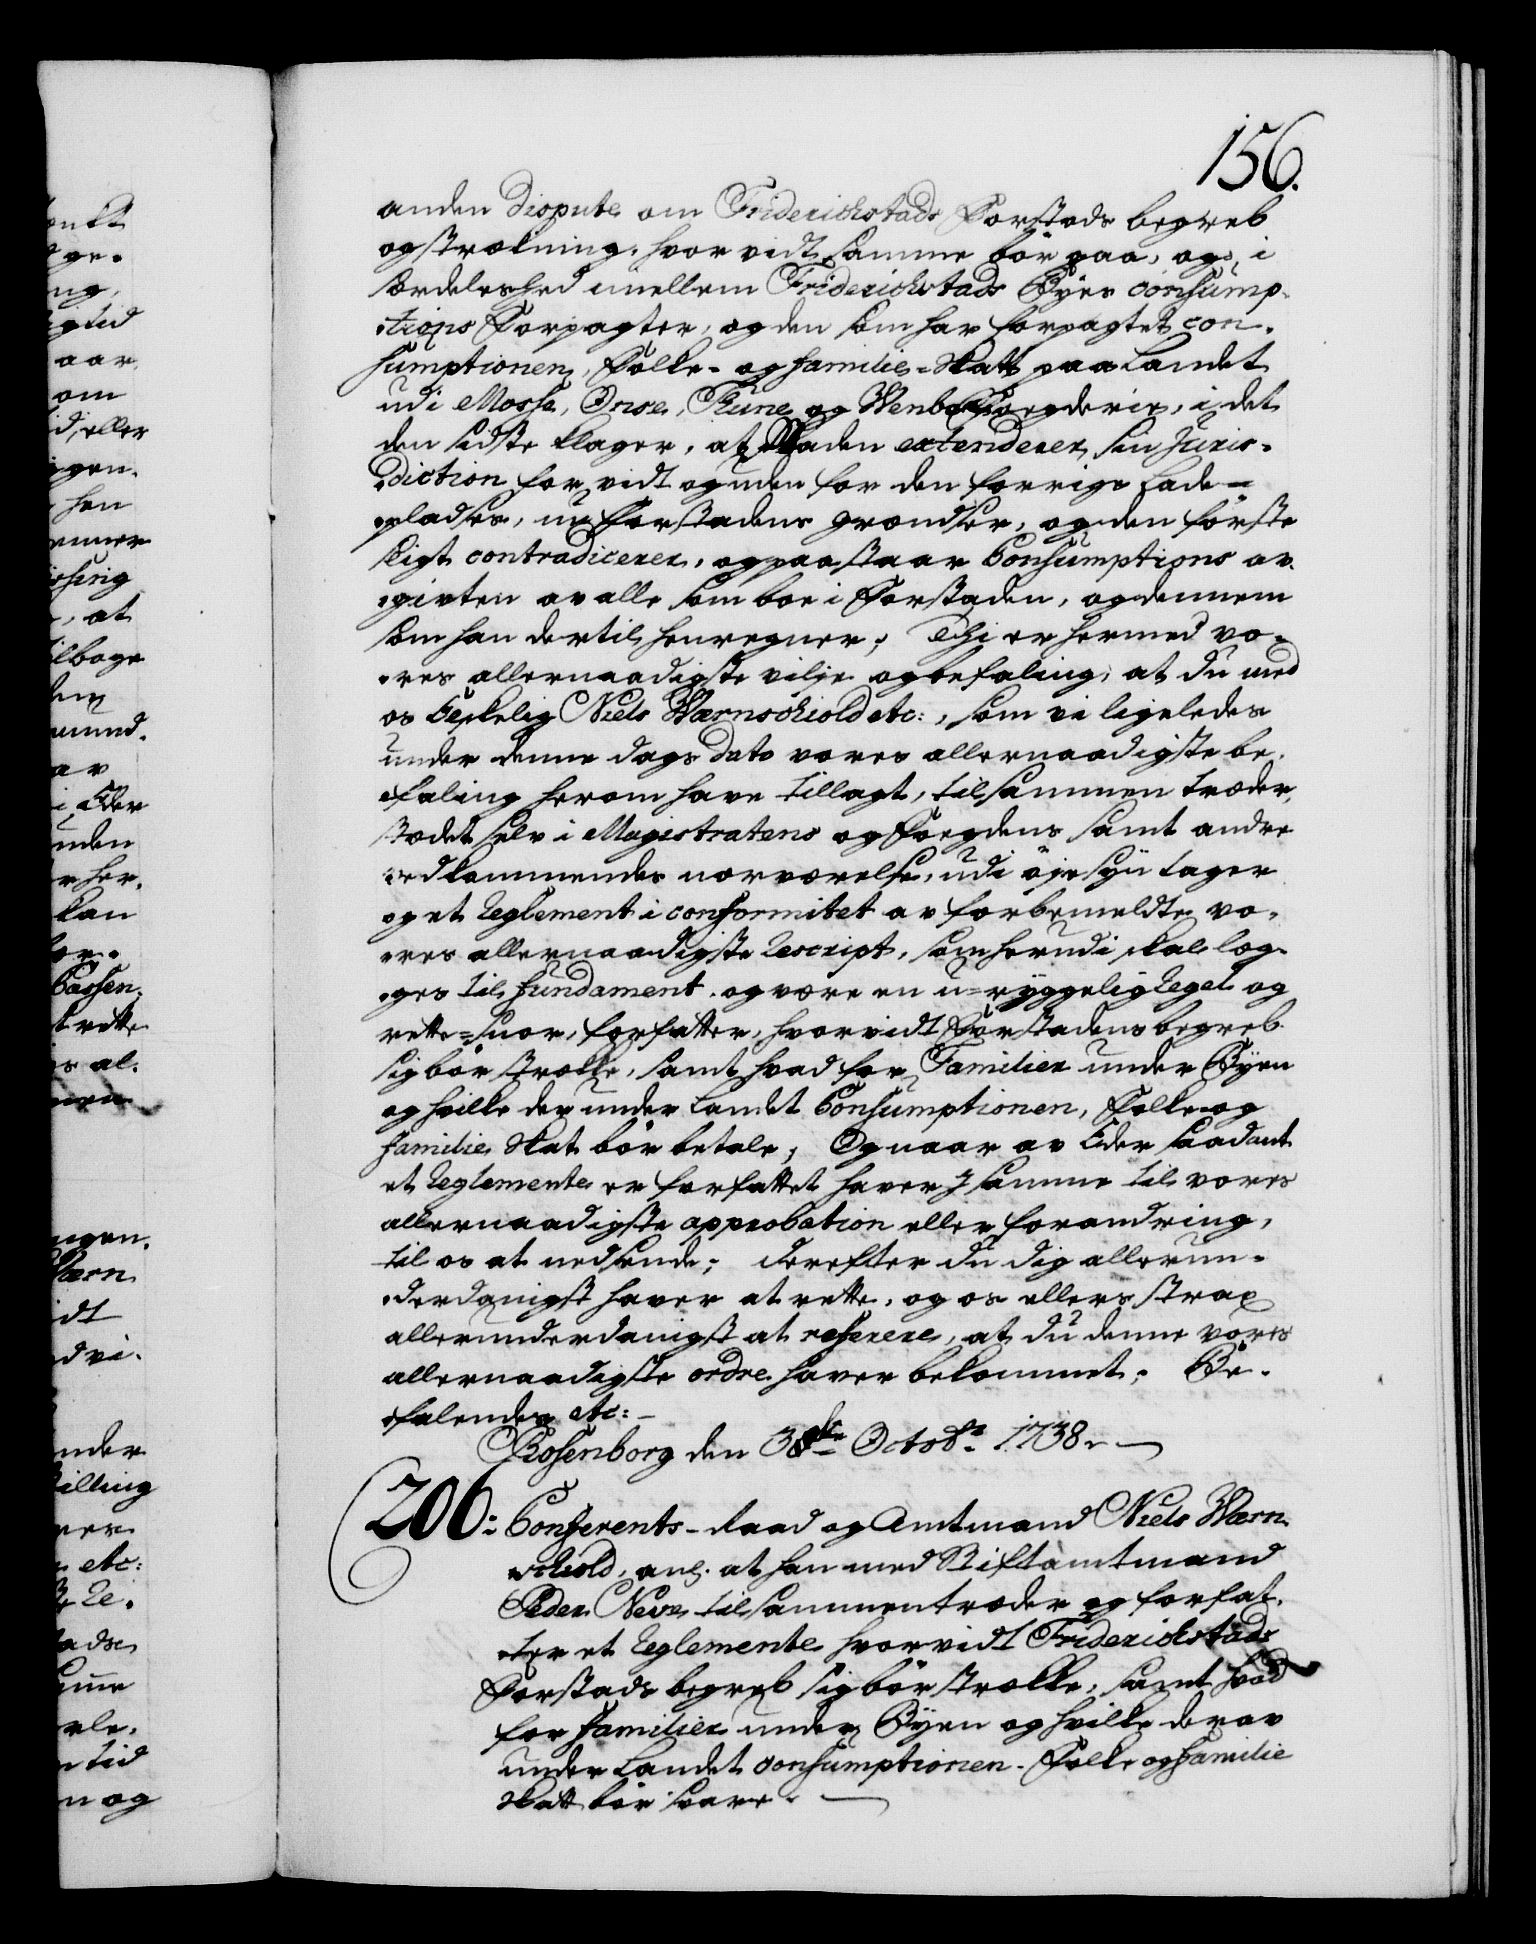 156.
anden Dispute om Friderichstads Forstads begreb
og strækning, hvor vidt samme bör gaa, og, i
særdeleshed imellem Friderichstads Byes consump-
-tions Forpagter, og den som har forpagtet con-
sumptionen, Folke- og Familie-Skatt paa Landet
udi Mosse, Onsøe, Tune og Wemb Fogderie, i det
den sidste klager, at Staden extenderer sin Juris-
-diction for vidt og uden for den forrige Lade-
-pladses, nu Forstadens grændser, og den förste
sligt contradicerer, og paastaar Consumptions av-
-givten av alle som boe i Forstaden, og dennem
som han dertil henregner; Thi er hermed vo-
-res allernaadigste vilje og befaling, at du med
os Elskelig Niels Wærnschiold etc:, som vi ligeledes
under denne dags Dato vores allernaadigste be-
-faling herom have tillagt, tilsammen træder,
stædet selv i Magistratens og Fogdens samt andre
vedkommendes nærværelse, udi öjesyn tager
og et Reglement i conformitet av forbemeldte vo-
-res allernaadigste Rescript, som herudi skal læg-
-ges til fundament, og være en u-ryggelig Regel og
rette-snor, forfatter, hvorvidt Forstadens begreb
sig bör strække, samt hvad for Familier under Byen
og hvilke der under Landet Consumptionen, Folke- og
Familie Skat bör betale; Og naar av Eder saadant
et Reglemente er forfattet haver I samme til vores
allernaadigste approbation eller forandring,
til os at nedsende; derefter du dig allerun-
-derdanigst haver at rette, og os ellers strax
allerunderdanigst at referere, at du denne vores
allernaadigste ordre haver bekommet; Be-
-falendes etc:
Rosenborg den Octobr: 1738.
206: Conferents-Raad og Amtmand Niels Wærn-
schiold, anl. at han med Stiftamtmand
Peder Neve tilsammentræder og forfat-
-ter et Reglemente hvorvidt Friderichstads
Forstads begreb sig bör strække, samt hvad
for Familier under Byen og hvilke derav
under Landet consumptionen, Folke og Familie
Skatt bör svare.